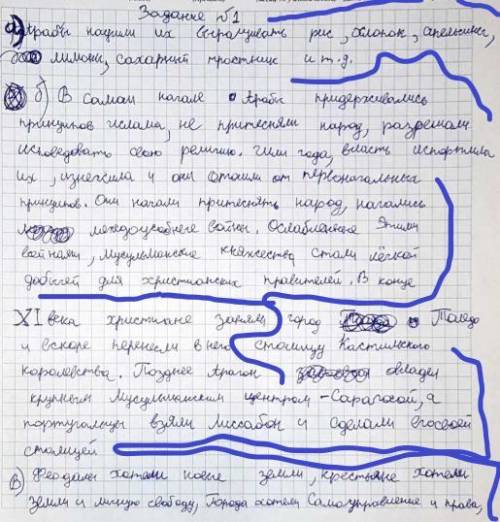 Задание №1
а) Арабы научили их выращивать рис, хлопок, апельсины,
лимоны, сахарный тростник и т.д.
б) В самом начале Арабы придерживались
принципов ислама, не притесняли народ, разрешали
исповедовать свою религию. Шли года, власть испортила
их, изнежила и они отошли от первоначальных
принципов. Они начали притеснять народ, начались
междоусобные войны. Ослабленные этими
войнами, Мусульманские княжества стали лёгкой
добычей для христианских правителей. В конце
XI века христиане заняли город Толедо
и вскоре перенесли в него столицу Кастильского
королевства. Позднее Арагон овладел
крупным мусульманским центром - Сарагосой, а
португальцы взяли Лиссабон и сделали его своей
столицей
в) Феодалы хотели новые земли, крестьяне хотели
земли и личную свободу, Города хотели Самоуправление и права,